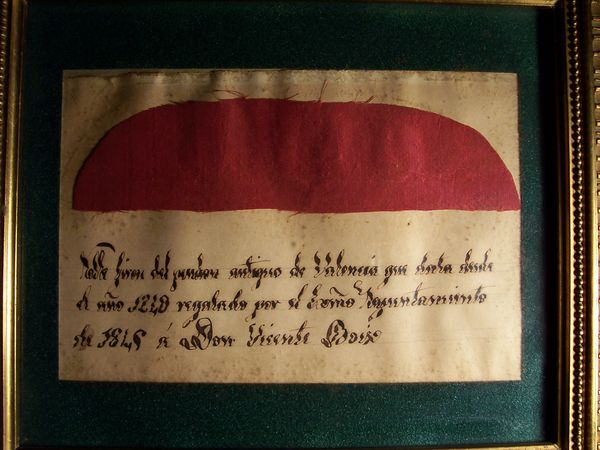 Este jiron del pendon antiguo de Valencia que data desde
el año regalado por el Ayuntamiento
de 1845 á Don Vicente Boix